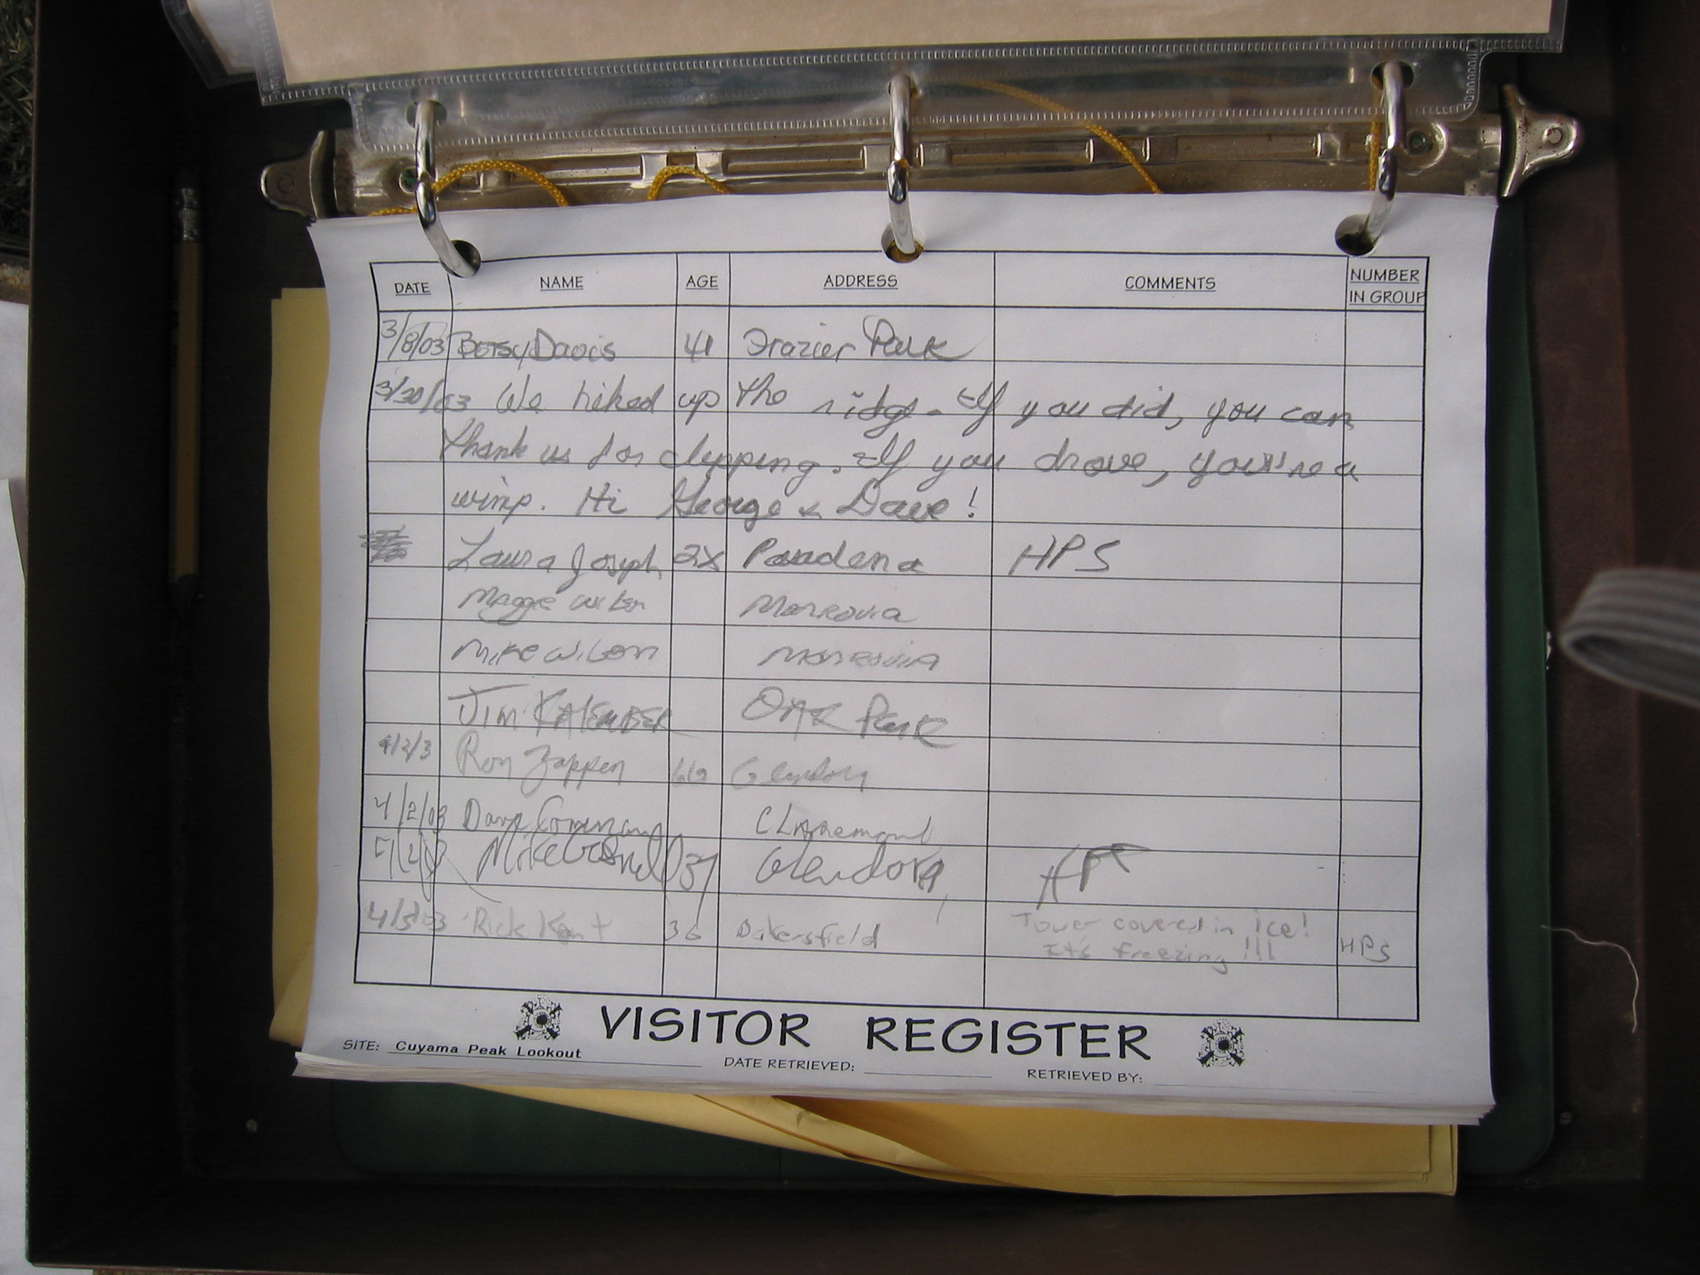 DATE NAME AGE ADDRESS COMMENTS NUMBER IN GROUP
3/8/03 Betsy Davis 41 Frazier Park
3/30/03 We hiked up the ridge. If you did, you can
thank us for clipping. If you drove, you're a
wimp. Hi George & Dave!
Laura Joseph 2X Pasadena HPS
Maggie Wilson Monrovia
Mike Wilson Monrovia
Jim Kalember Oak Park
4/2/3 Ron Zappen Glendora
4/2/03 Dave Claremont
Mike 37 Glendora
4/3/03 Rick Kent 36 Bakersfield Tower covered in ice!
It's freezing!!! HPS
VISITOR REGISTER
SITE: Cuyama Peak Lookout DATE RETRIEVED: RETRIEVED BY: